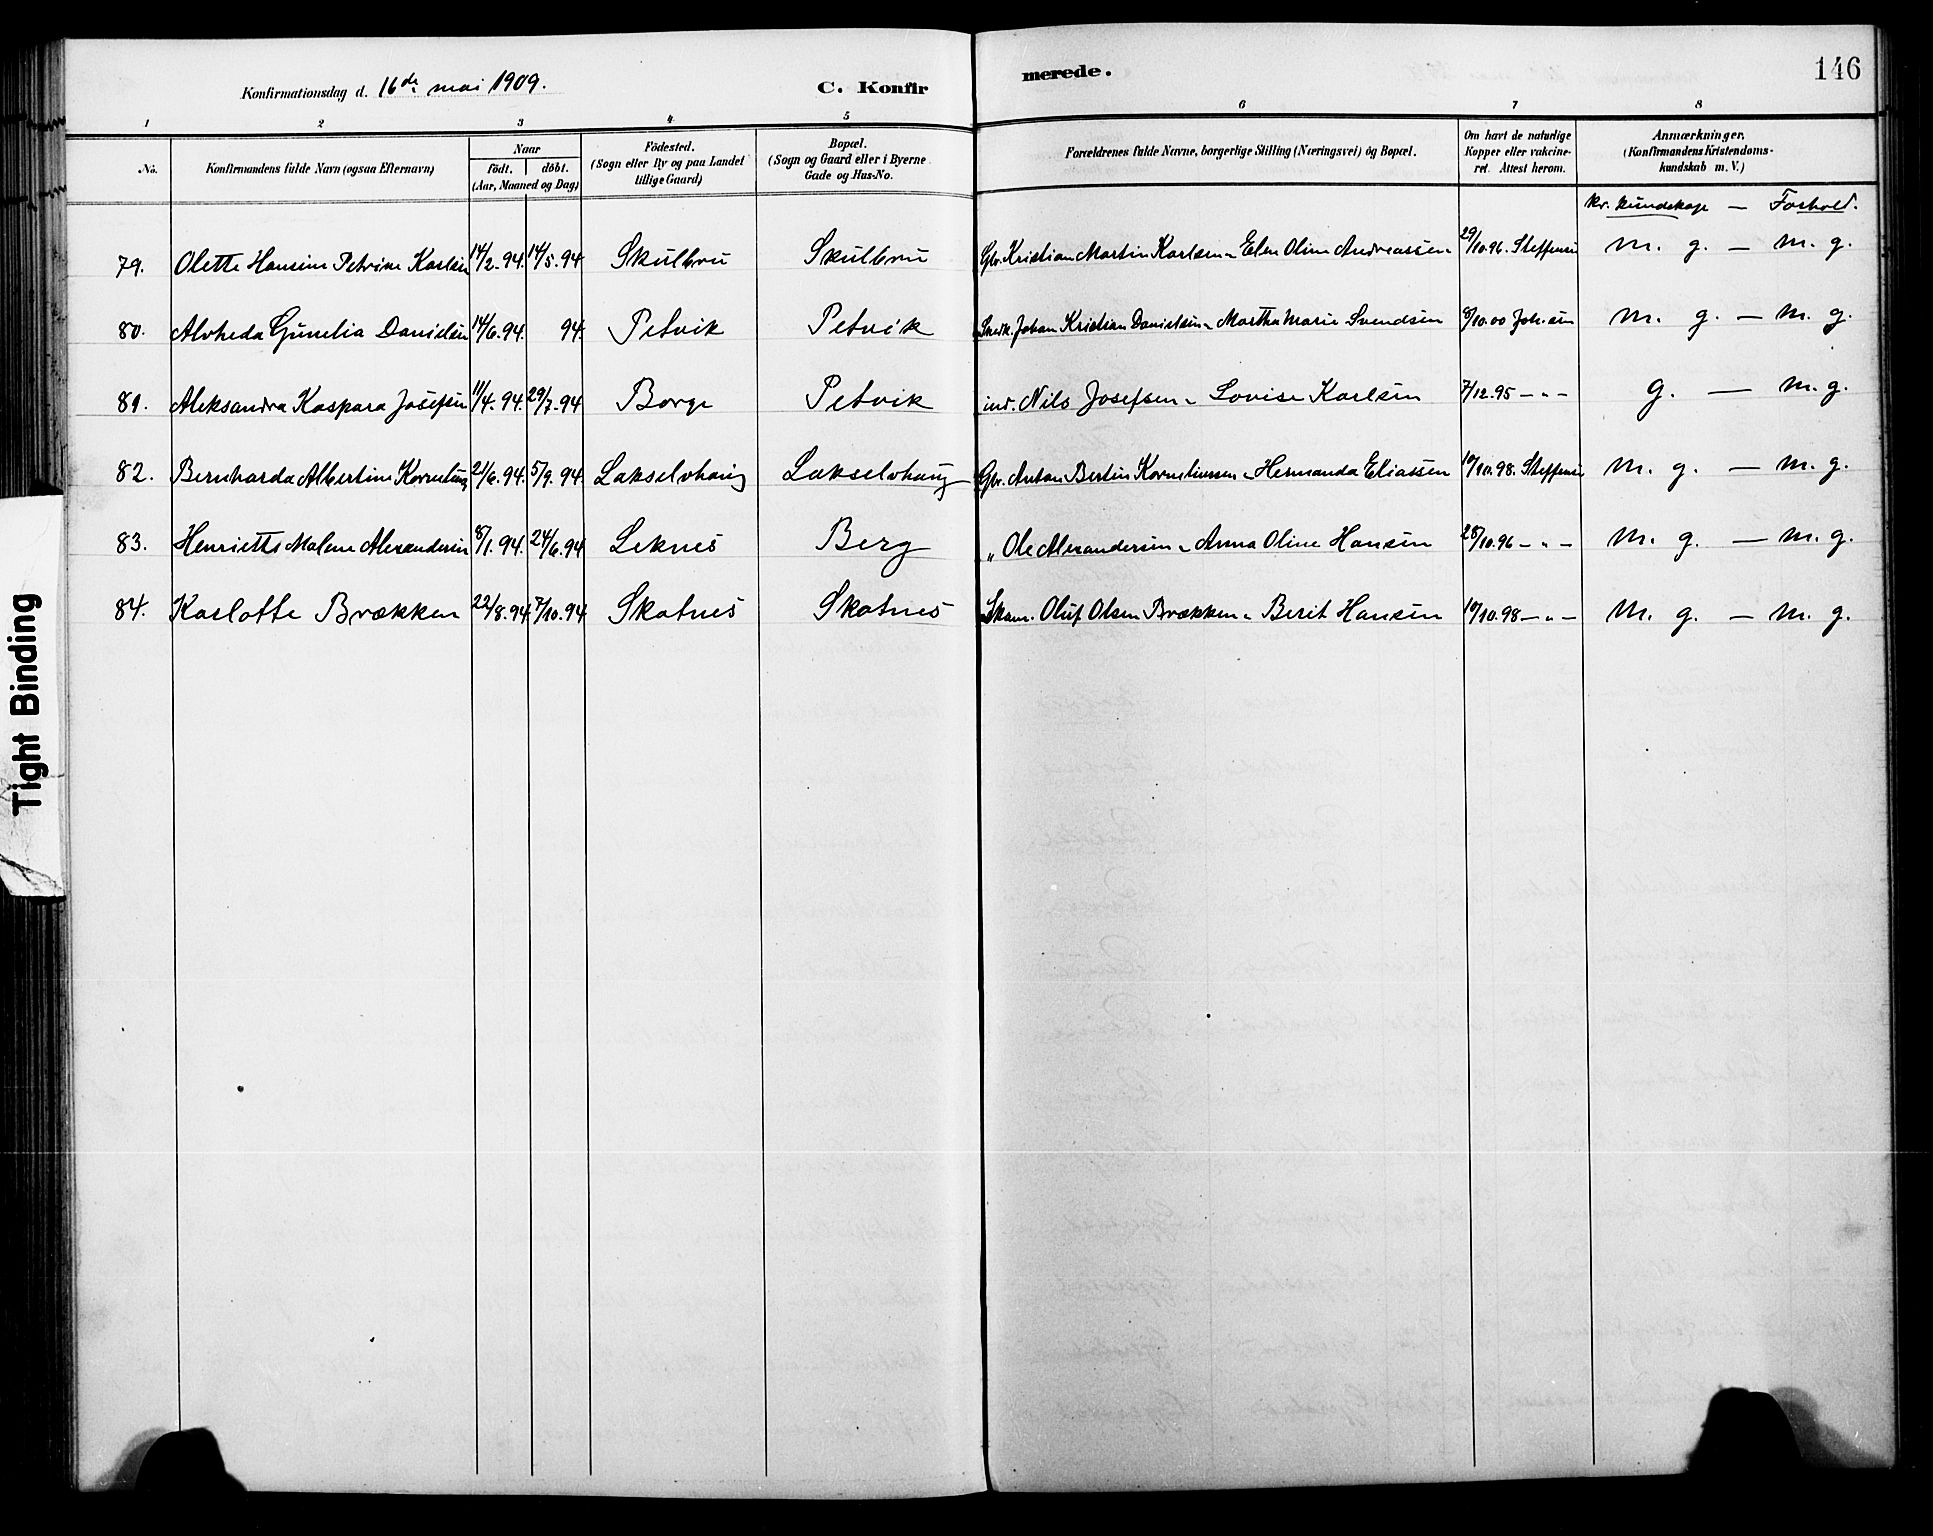 146
Konfirmationsdag d. 16de mai 1909. C. Konfirmerede.
1 2 3 4 5 6 7 8
No. Konfirmandens fulde Navn (ogsaa Efternavn) Naar födt. döbt. (Aar, Maaned og Dag) Födested. (Sogn eller By og paa Landet tillige Gaard) Bopæl. (Sogn og Gaard eller i Byerne Gade og Hus-No. Forældrenes fulde Navne, borgerlige Stilling (Næringsvei) og Bopæl. Om havt de naturlige Kopper eller vakcineret. Attest herom. Anmærkninger. (Konfirmandens Kristendomskundskab m. V.)
kr. kundskap — Forhold.
79. Olette Hansine Petrine Karlsen 14/2.94. 14/5.94 Skulbru Skulbru Gbr. Kristian Martin Karlsen „ Elen Oline Andreassen 29/10.96. Steffensen m. g. — m. g.
80. Alvheda Gunelia Danielsen 14/6.94. 94. Petvik Petvik Snedk. Johan Kristian Danielsen „ Martha Marie Svendsen 8/10.00 Joh.sen m. g. — m. g.
81. Aleksandra Kaspara Josefsen 11/4.94. 29/7.94 Borge Petvik ind. Nils Josefsen „ Lovise Karlsen 7/12.95 — „ — g. — m. g.
82. Bernharda Albertine Kornelius 21/6.94. 5/9.94 Lakselvhaug Lakselvhaug Gbr. Anton Bertin Korneliussen „ Hermanda Eliassen 10/10.98. Steffensen m. g. — m. g.
83. Henriette Malene Alexandersen 8/1.94. 24/6.94 Leknes Berg „ Ole Alexandersen „ Anna Oline Hansen 28/10.96 — „ — m. g. — m. g.
84. Karlotte Brækken 22/8.94 7/10.94 Skotnes Skotnes Skom. Oluf Olsen Brækken „ Berit Hansen 10/10.98 — „ — m. g. — m. g.
Tight Binding